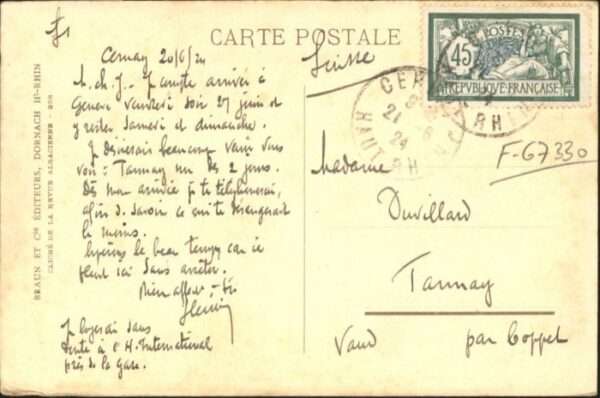 CARTE POSTALE
Cernay 20/6/24
M. ch. J. - J compte arriver à
Genève vendredi soir 27 juin et
y rester Samedi et dimanche.
Je désirerais beaucoup venir vous
voir à Tannay un des 2 jours.
Dès mon arrivée je te téléphonerai,
afin d. savoir ce qui te dérangerait
le moins.
Espérons le beau temps car ce
pleut ici sans arrêter.
Bien affect
Je logerai sans
doute à l'H. International
près de la Gare.
Suisse
45 POSTES
RÉPUBLIQUE FRANÇAISE
CERNAY
21 - 6
24
HAUT RHIN
F-67330
Madame
Duvillard
Tannay
par Coppet
Vaud
BRAUN ET Cie ÉDITEURS, DORNACH Ht-RHIN
CLICHÉ DE LA REVUE ALSACIENNE